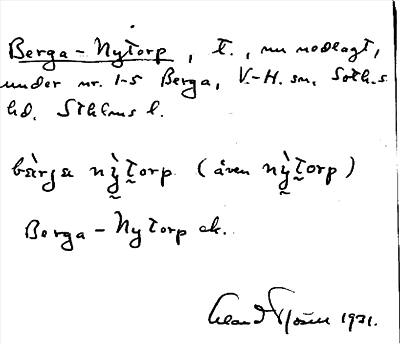 Berga-Nytorp, t., nu nedlagt,
under nr. 1-5 Berga, V.-H. sn, Soth.s
hd. Sthlms l.
bærga nỳtorp (även nỳtorp)
Berga-Nytorp ek.
1931.